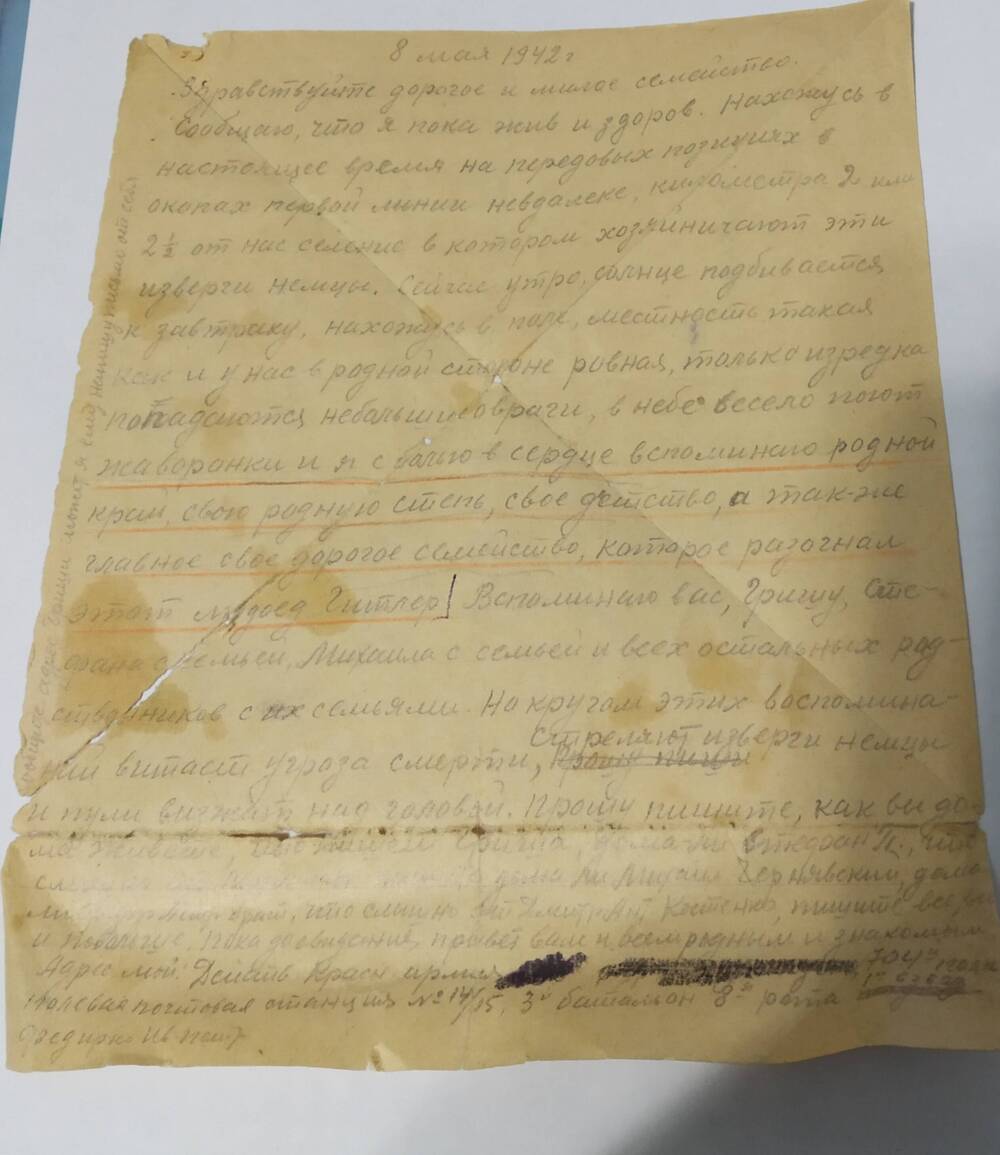 8 мая 1942 г
Здравствуйте дорогое и милое семейство.
Сообщаю, что я пока жив и здоров. Нахожусь в
настоящее время на передовых позициях в
окопах первой линии невдалеке, километра 2 или
2 ½ от нас селение в котором хозяйничают эти
изверги немцы. Сейчас утро, солнце подбивается
к завтраку, нахожусь в поле, местность такая
как и у нас в родной стороне ровная, только изредка
попадаются небольшие овраги, в небе весело поют
жаворанки и я с болью в сердце вспоминаю родной
край, свою родную степь, свое детство, а так-же
главное свое дорогое семейство, которое разогнал
этот людоед Гитлер. Вспоминаю вас, Гришу, Сте-
фана с семьей, Михаила с семьей и всех остальных род-
ственников с их семьями. Но кругом этих воспомина-
стреляют изверги немцы
ний витает угроза смерти,
и пули визжат над головой. Прошу пишите, как вы до-
ма живете, пишет Гриша, дома ли Стефан П., что
слышно дома ли Михаил Чернявский, дома
ли брат, что слышно от Дмитр. Ант. Костенко, пишите все,
и побольше. Пока до свидания, привет вам и всем родным и знакомым
Адрес мой: Действ. Красн армия 704
полевая почтовая станция № 14/15, 3й батальон 8я рота
Федирко Ив.
адрес может я ему напишу письмо от себя